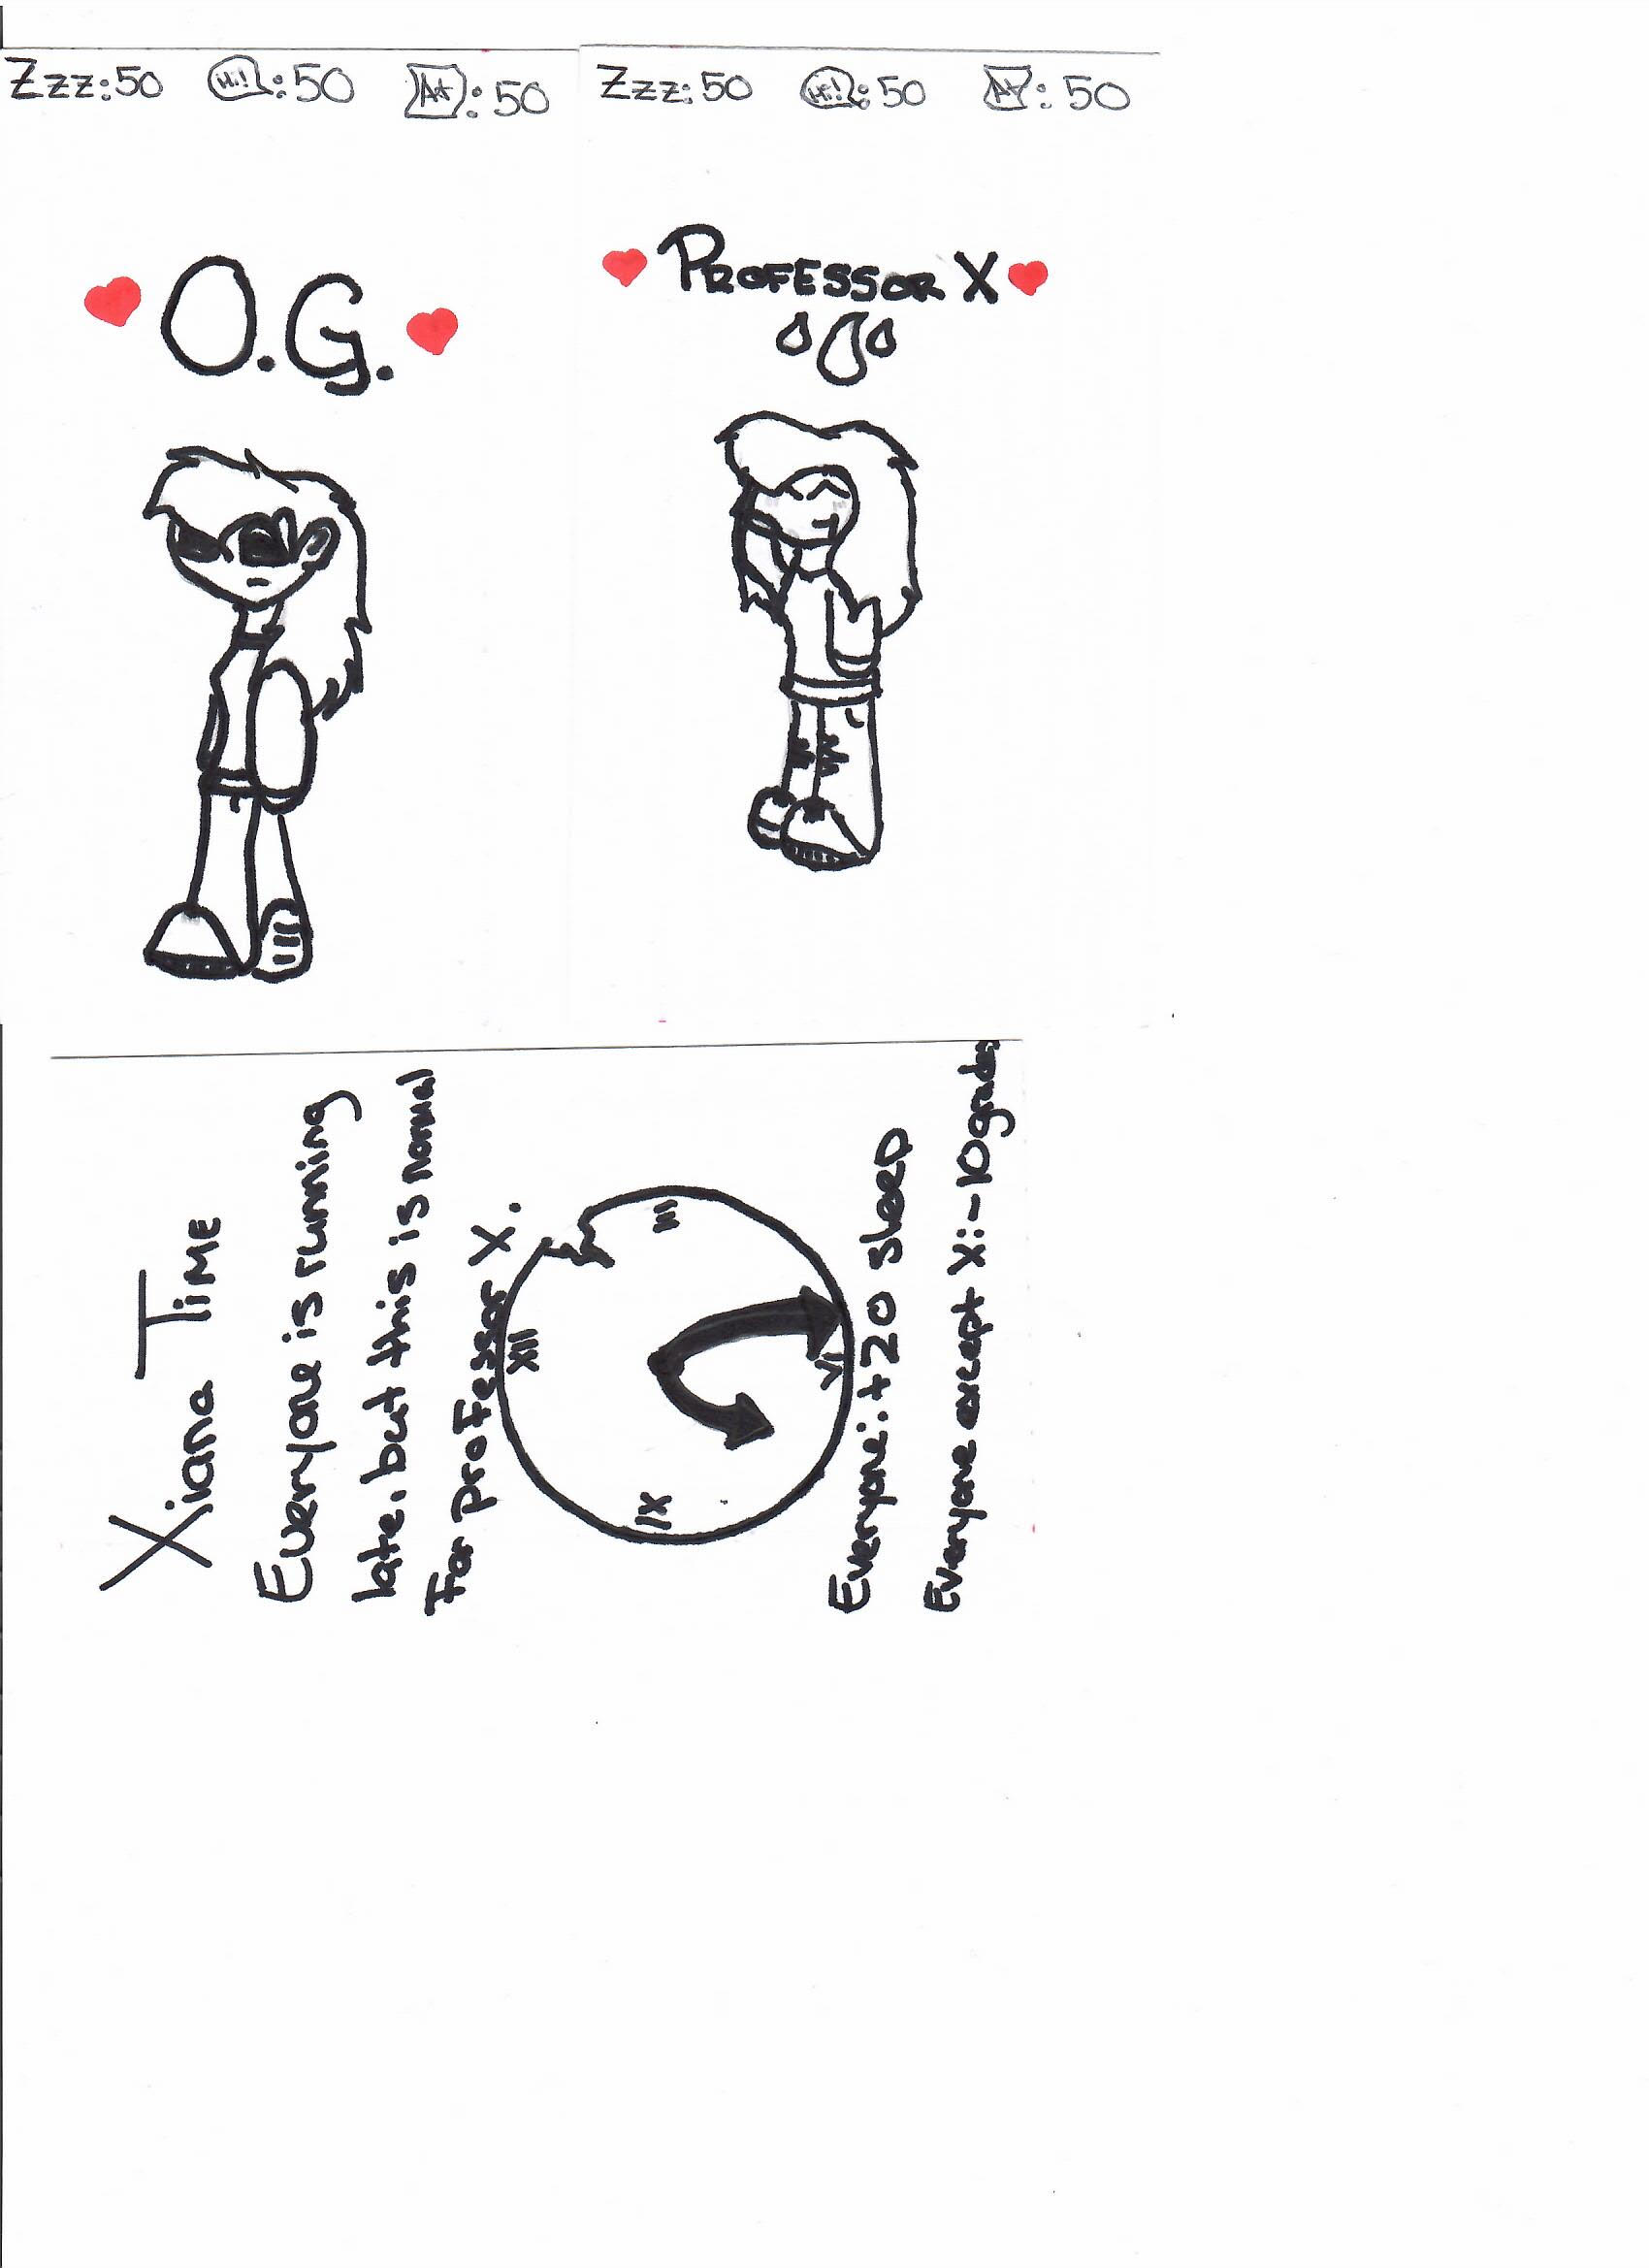 Zzz:50 Hi!:50 A+:50
O.G.
Zzz:50 Hi!:50 A+:50
PROFESSOR X
Xiana TiME
Everyone is running
late, but this is normal
For professor X.
XII
III
VI
IX
Everyone: +20 sleep
Everyone except X: -10 grades